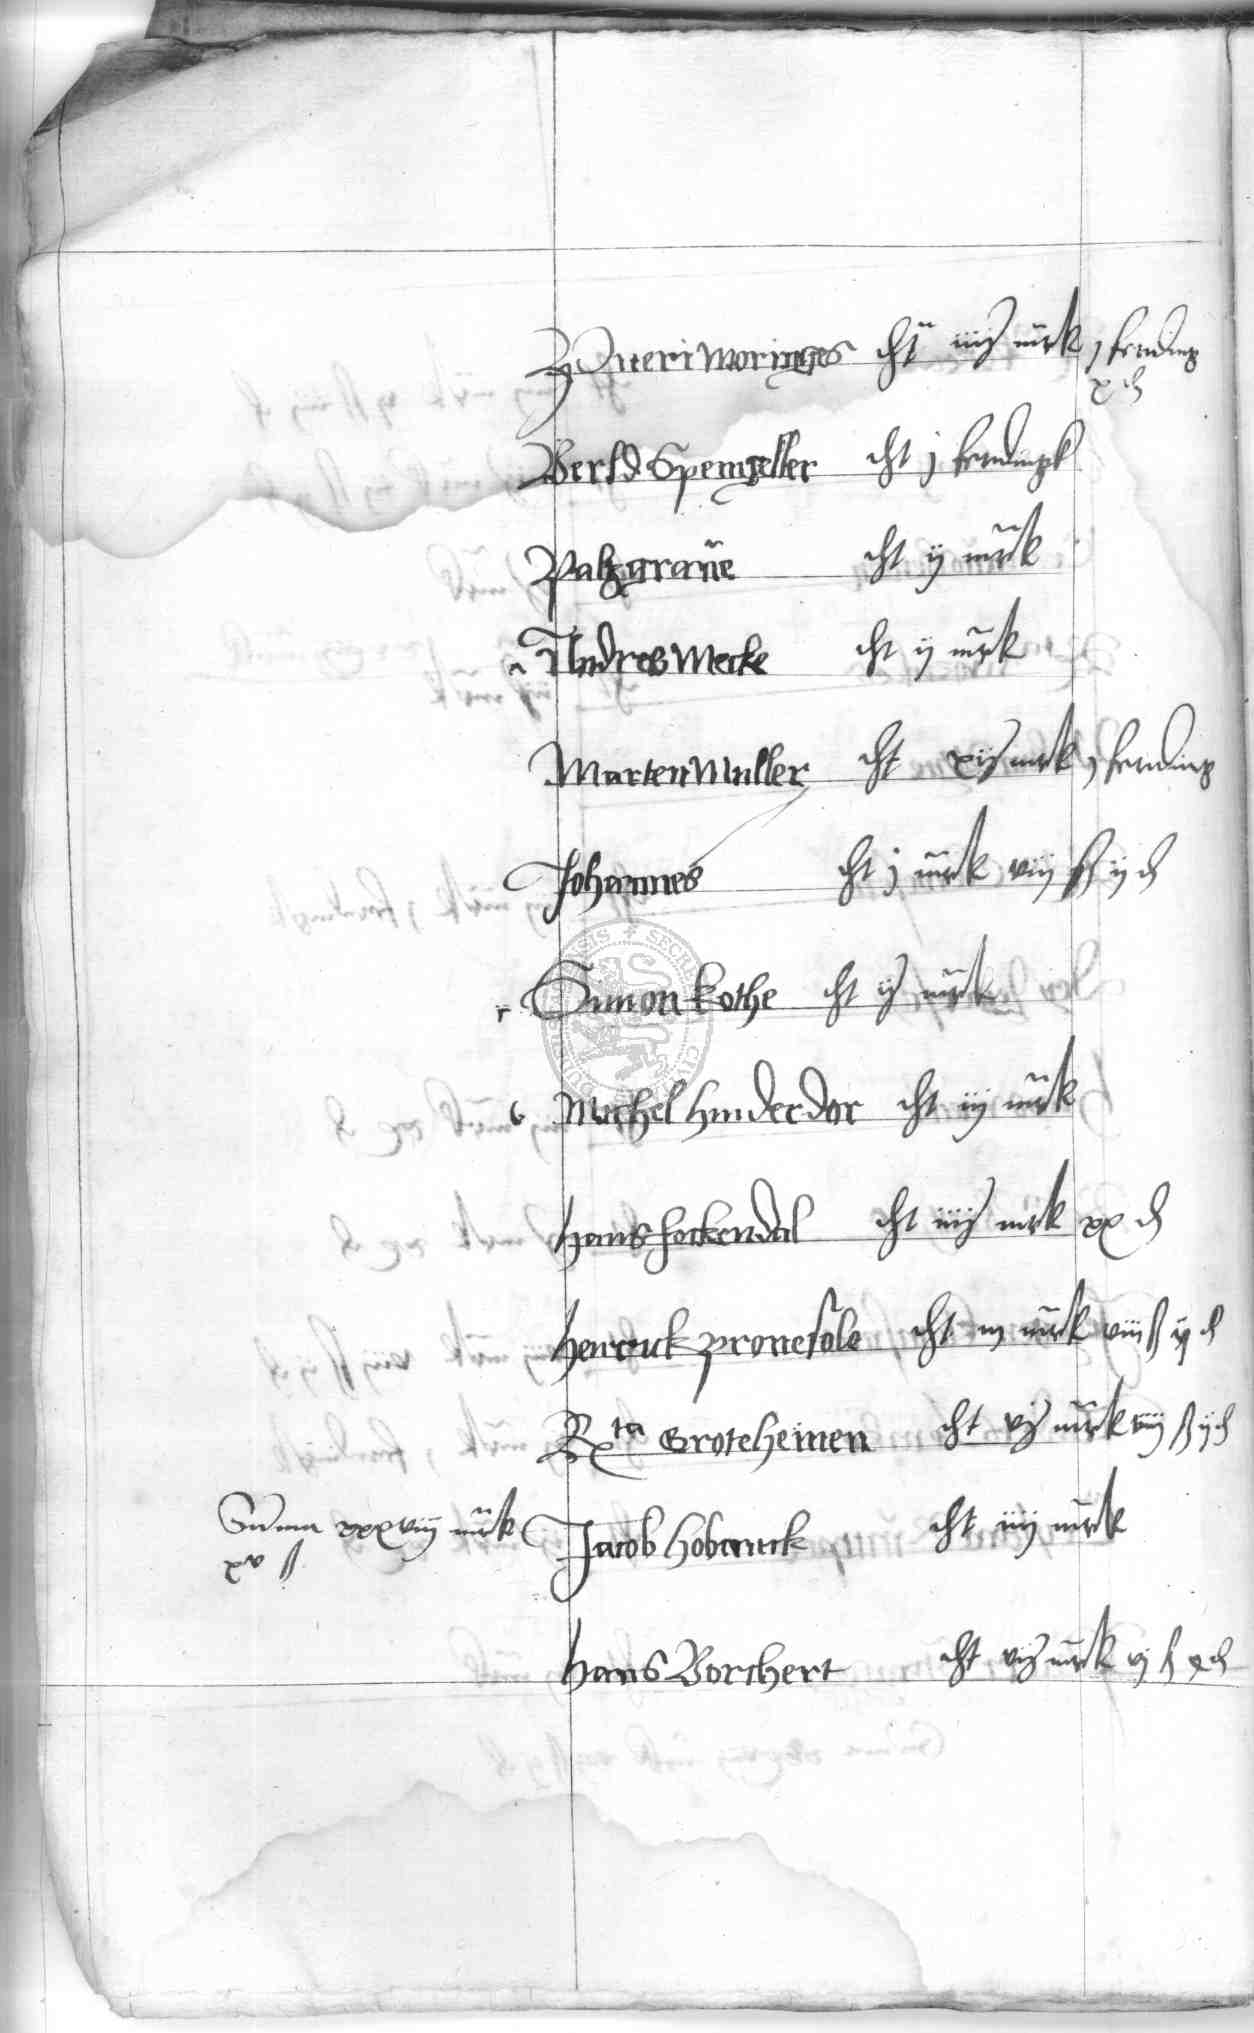 Queri Moringes cht iiij mrk j ferding
x d
Bertd Spemgeller cht j ferdingk
Palzgraue cht ij mrk
Andres Mecke cht ij mrk
Marten Muller cht xij mrk j ferding
Johannes cht j mrk viij ß ij d
Simon Kothe cht ij mrk
Michel Hinderdor cht iij mrk
Hans Fockendal cht iiij mrk xx d
Henrick Pronesole cht iij mrk viij ß ij d
Rta Groteheinen cht vj mrk viiij ß ij d
Summa xxxviij mrk Jacob Hobanck cht iiij mrk
xv ß
Hans Borchert cht vij mrk vj ß x d